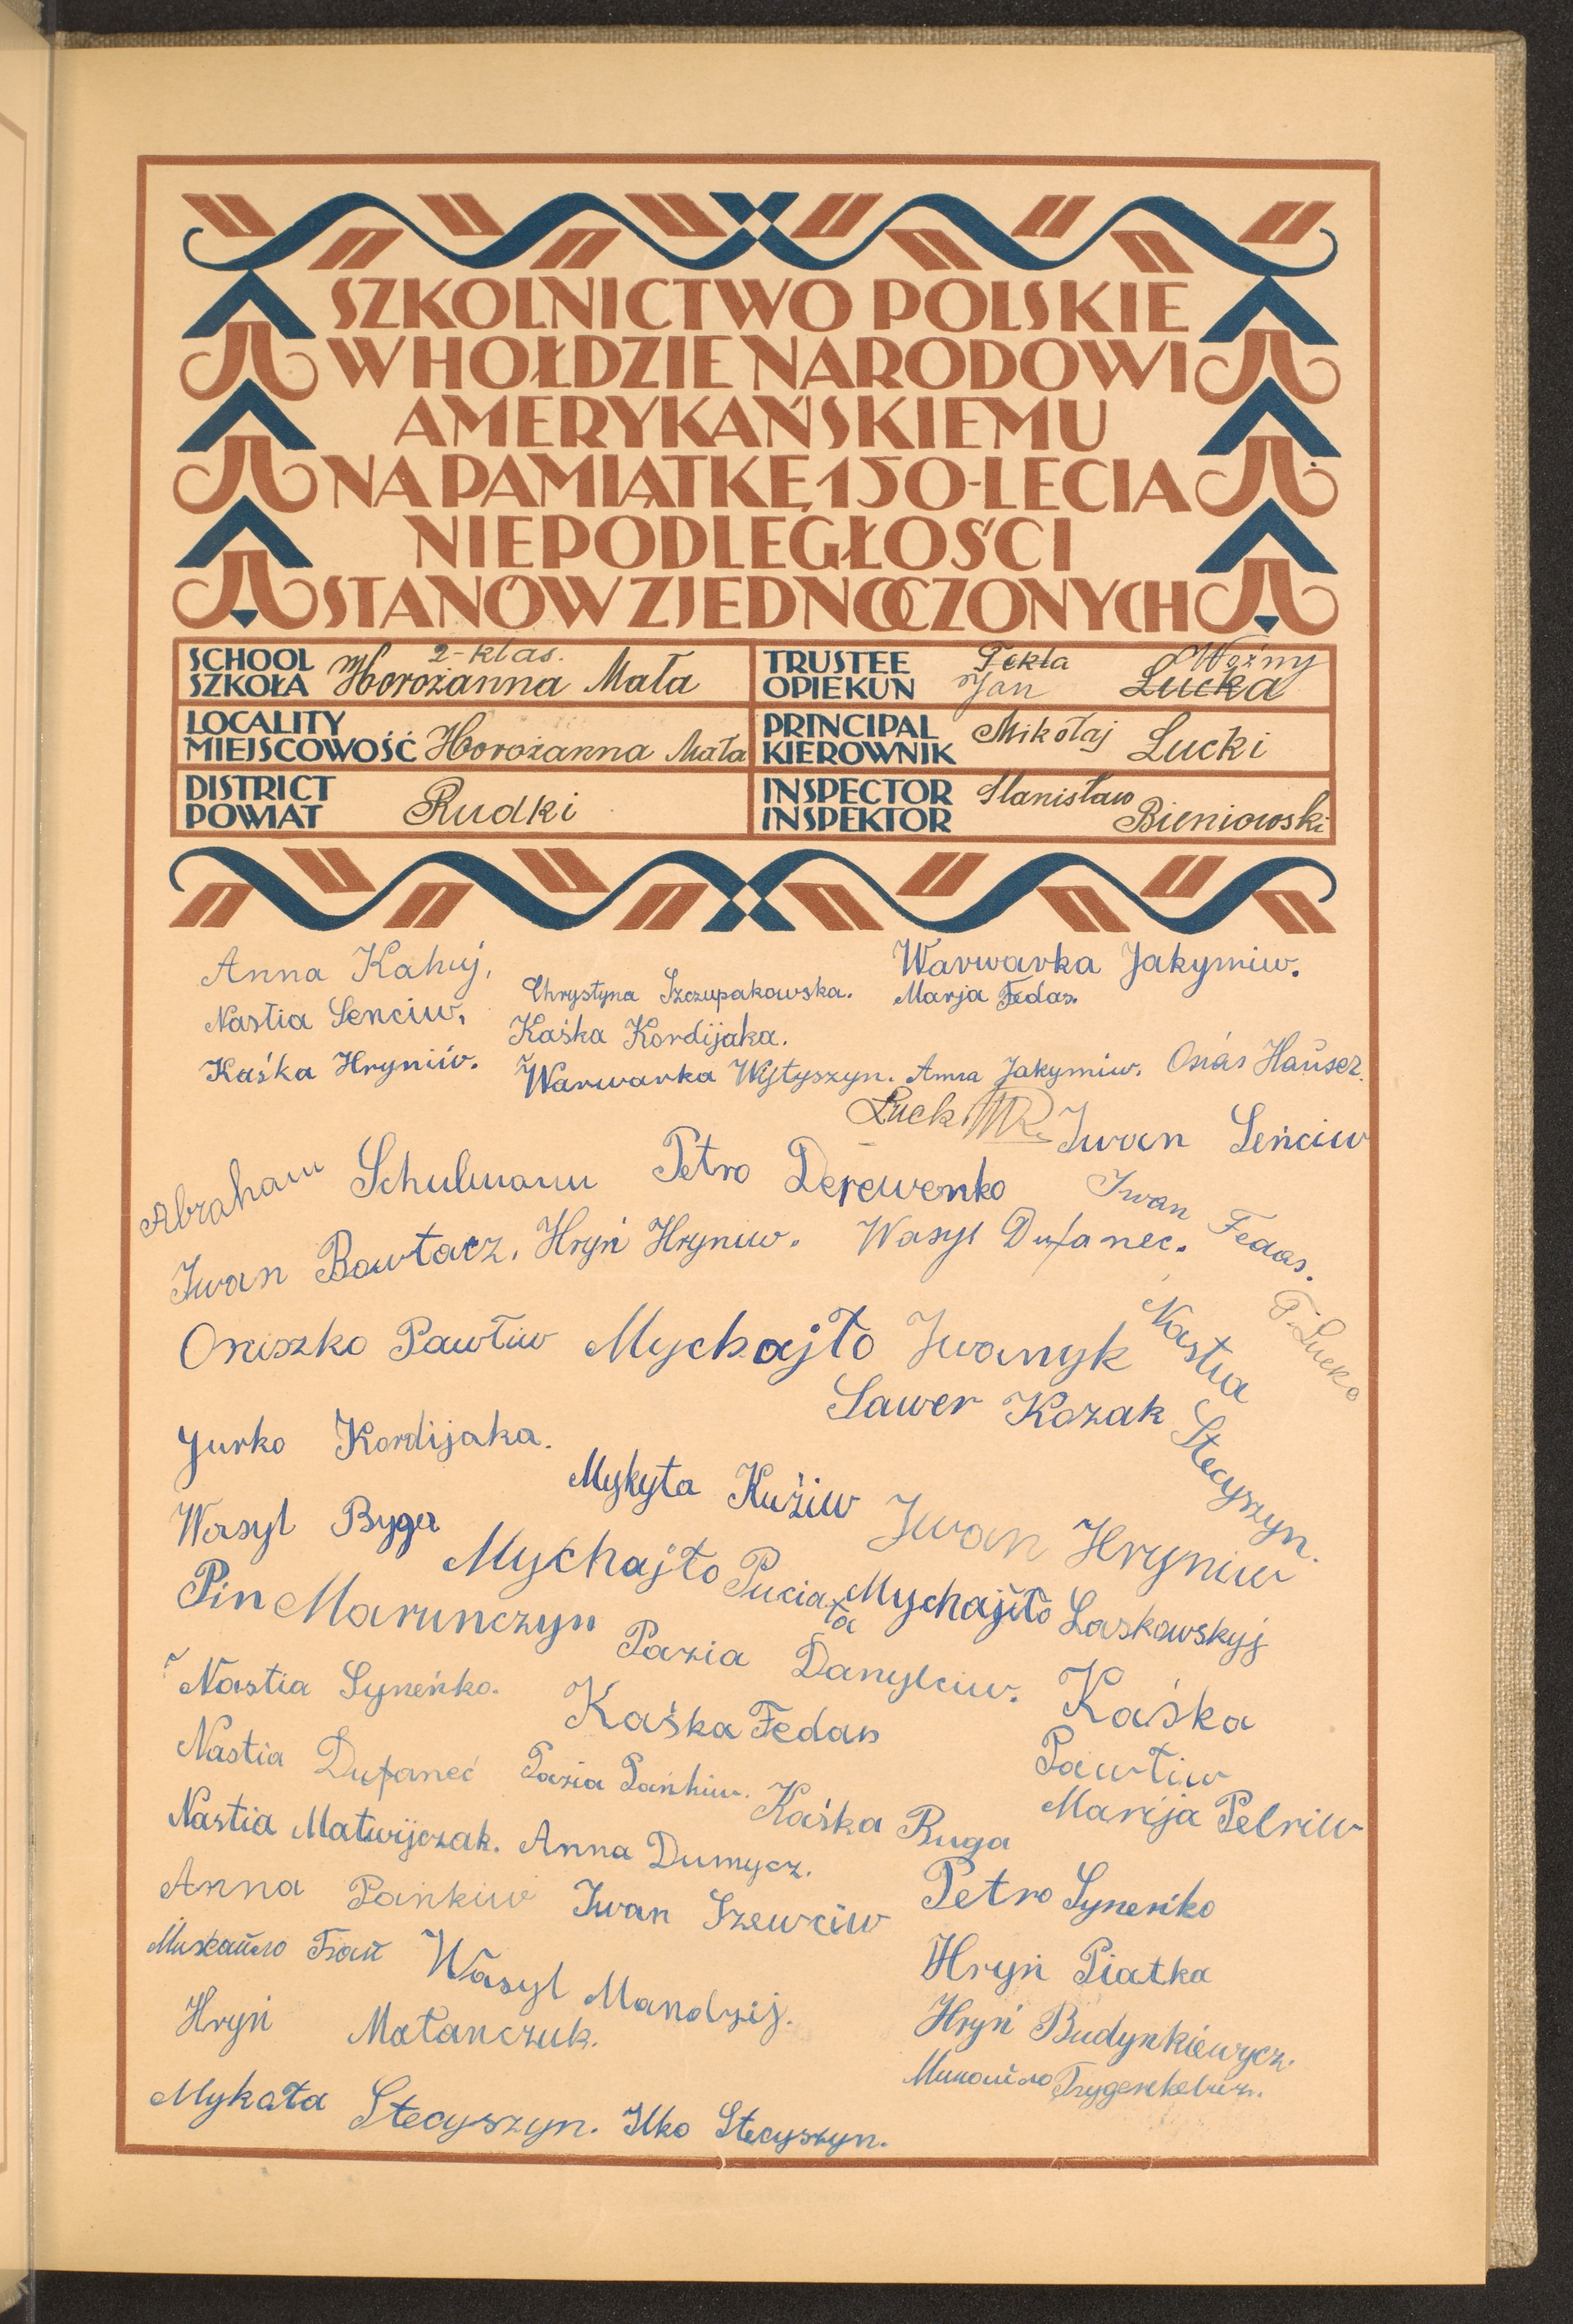 SZKOLNICTWO POLSKIE
W HOŁDZIE NARODOWI
AMERYKAŃSKIEMU
NA PAMIĄTKĘ 150-LECIA
NIEPODLEGŁOŚCI
STANÓW ZJEDNOCZONYCH
SCHOOL
SZKOŁA
2-klas.
Horożanna Mała
TRUSTEE
OPIEKUN
Tekla Lucka
Jan Woźny
LOCALITY
MIEJSCOWOŚĆ
Horożanna Mała
PRINCIPAL
KIEROWNIK
Mikołaj Lucki
DISTRICT
POWIAT
Rudki
INSPECTOR
INSPEKTOR
Stanisław
Bieniowski
Anna Kahuj,
Warwarka Jakymiw.
Chrystyna Szczupakowska.
Marja Fedas.
Nastia Senciw,
Kaśka Kordijaka.
Kaśka Hryniiv.
Warwarka Wijtyszyn.
Anna Jakymiw.
Osias Hauser.
Lucki
Iwan Seńciw
Abraham Schulmann
Petro Derewenko
Iwan Fedas.
Iwan Bawłacz.
Hryń Hryniw.
Wasyl Dufanec.
Oniszko Pawłiw
Mychajło Iwanyk
Nastia Stecyszyn.
T. Lucka
Sawer Kozak
Jurko Kordijaka.
Mykyta Kuźiw
Iwan Hryniw
Wasyl Byga
Mychajło Puciata
Mychajło Laskowskyj
Pin Marunczyn
Pazia Danylciw.
Nastia Syneńko.
Kaśka Fedas
Kaśka
Pawłiw
Nastia Dufaneć
Pazia Pańkiw.
Kaśka Buga
Marija Petriw
Nastia Matwijczak.
Anna Dumycz.
Anna Pańkiw
Iwan Szewciw
Petro Syneńko
Wasyl Mandzij.
Hryń Piatka
Hryń Małanczuk.
Hryń Budynkiewycz.
Mykała Stecyszyn.
Ilko Stecyszyn.